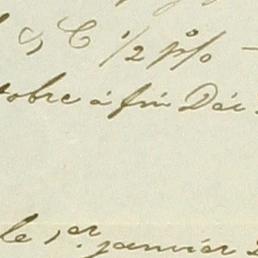 & C 1/2 p%
tobre à fin Déc
le 1er janvier 2